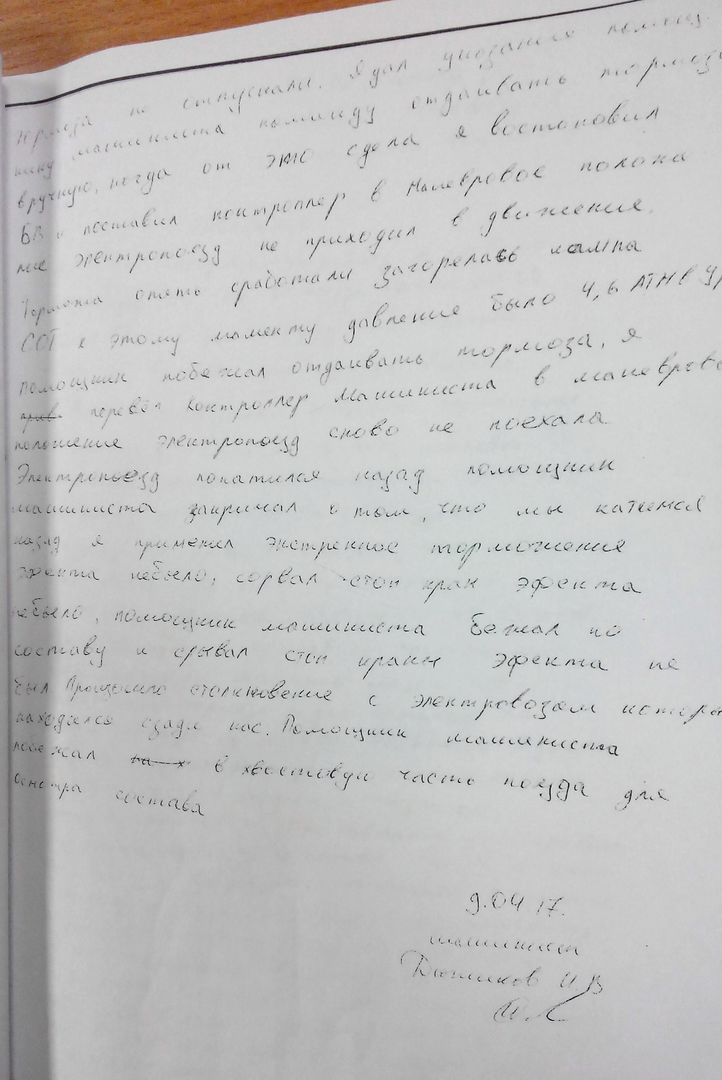 тормоза не отпускали. Я дал указания помощ
нику машиниста команду отдаивать тормоза
вручную, когда от это сдела я востоновил
БВ и поставил контроллер в Маневровое положе
ние электропоезд не приходил в движения.
Тормоза опять сработали загорелась лампа
СОТ к этому маменту давление было 4,6 АТМ в УР
помощник побежал отдаивать тормоза, я
перевёл контроллер Машиниста в маневровое
положение электропоезд сново не поехала.
Электропоезд покатился назад помощник
машиниста закричал о том, что мы катемся
назад я применил экстренное торможения
эфекта небыло, сорвал стоп кран эфекта
небыло, помощник машиниста бежал по
составу и срывал стоп краны эфекта не
был. Произошло столкновение с электровозам которы
находелся сзади нас. Помощник машиниста
побежал в хвостовую часть поезда для
осмотра состава
9.04 17.
машинист
И.В